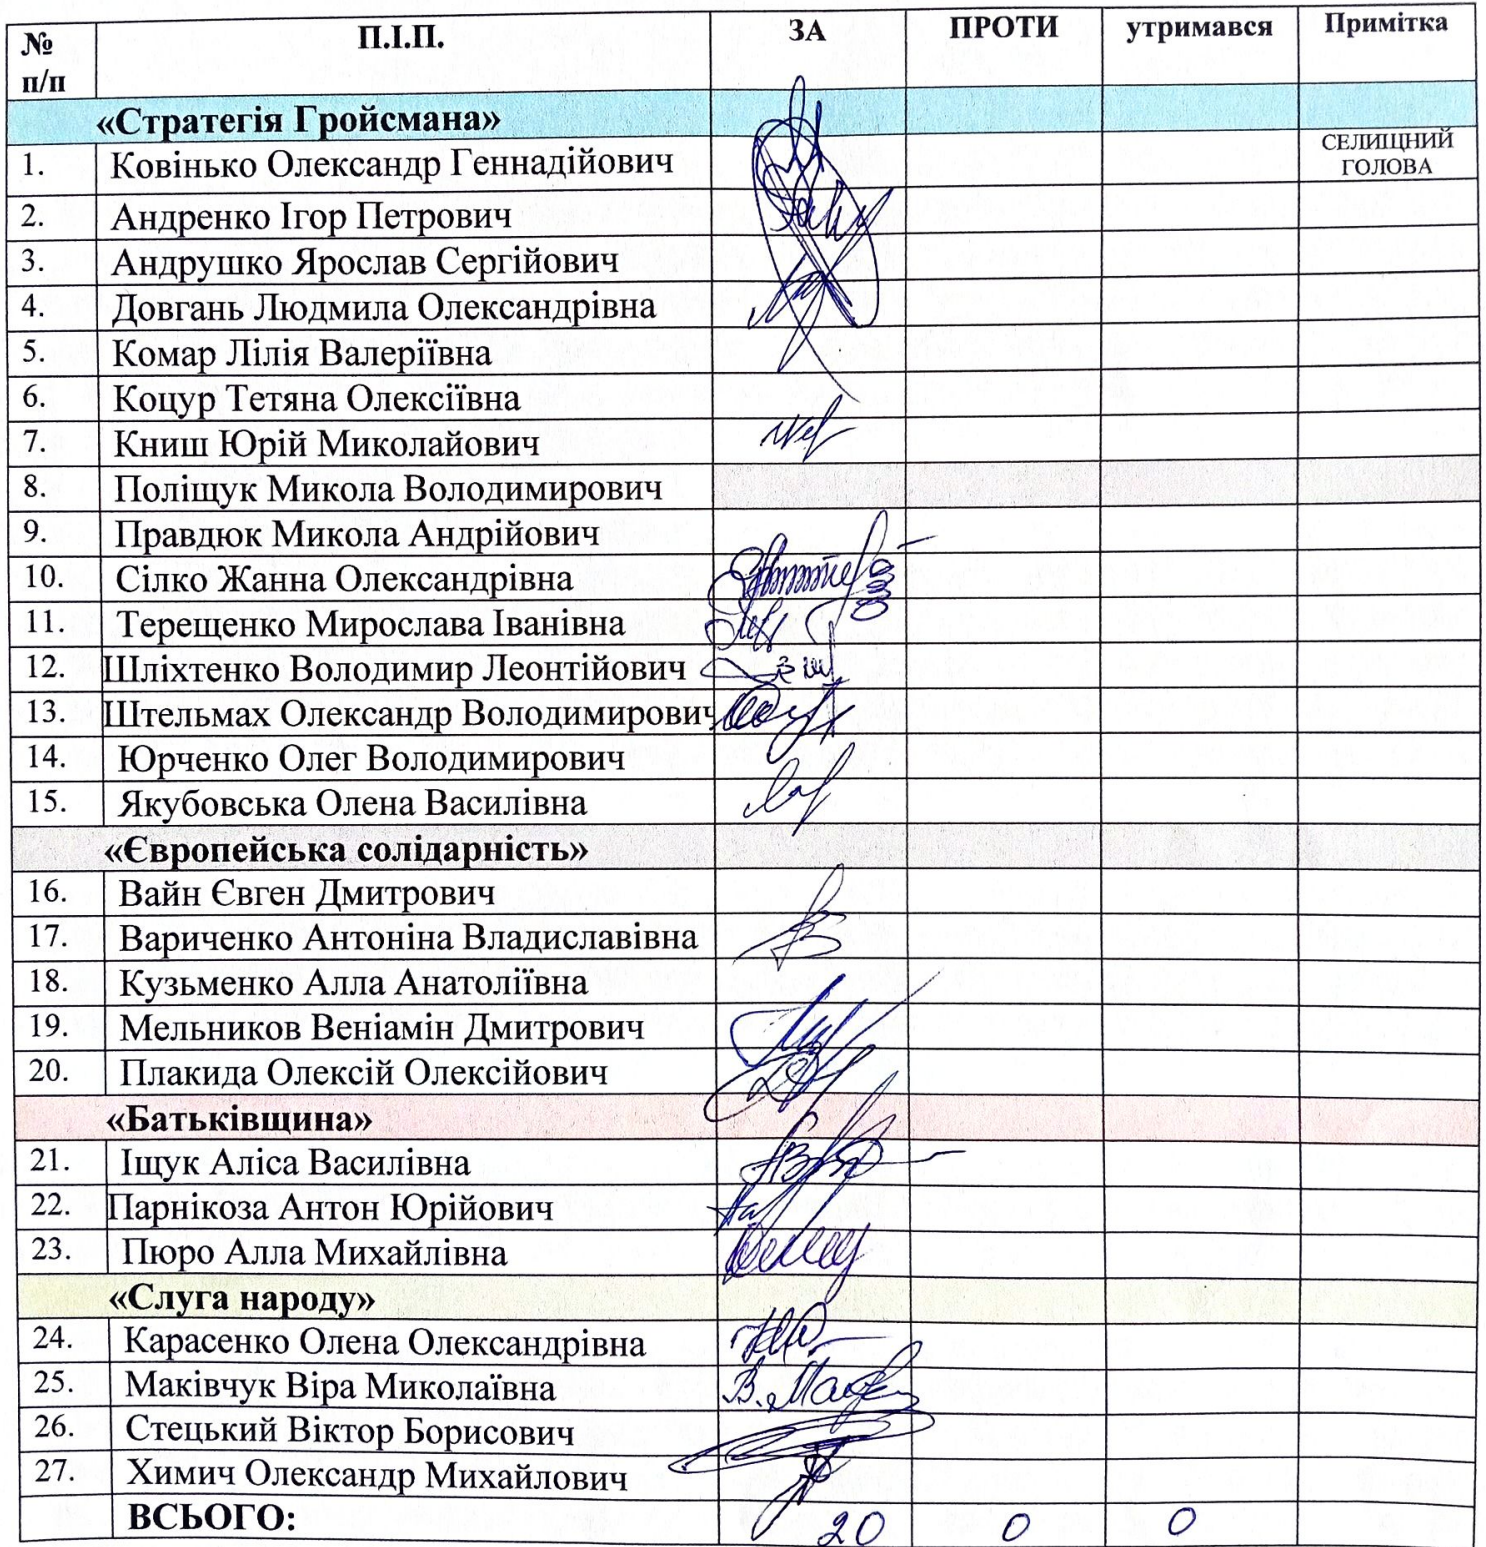 № п/п П.І.П. ЗА ПРОТИ утримався Примітка
«Стратегія Гройсмана»
1. Ковінько Олександр Геннадійович СЕЛИЩНИЙ ГОЛОВА
2. Андренко Ігор Петрович
3. Андрушко Ярослав Сергійович
4. Довгань Людмила Олександрівна
5. Комар Лілія Валеріївна
6. Коцур Тетяна Олексіївна
7. Книш Юрій Миколайович
8. Поліщук Микола Володимирович
9. Правдюк Микола Андрійович
10. Сілко Жанна Олександрівна
11. Терещенко Мирослава Іванівна
12. Шліхтенко Володимир Леонтійович
13. Штельмах Олександр Володимирович
14. Юрченко Олег Володимирович
15. Якубовська Олена Василівна
«Європейська солідарність»
16. Вайн Євген Дмитрович
17. Вариченко Антоніна Владиславівна
18. Кузьменко Алла Анатоліївна
19. Мельников Веніамін Дмитрович
20. Плакида Олексій Олексійович
«Батьківщина»
21. Іщук Аліса Василівна
22. Парнікоза Антон Юрійович
23. Пюро Алла Михайлівна
«Слуга народу»
24. Карасенко Олена Олександрівна
25. Маківчук Віра Миколаївна
26. Стецький Віктор Борисович
27. Химич Олександр Михайлович
ВСЬОГО: 20 0 0